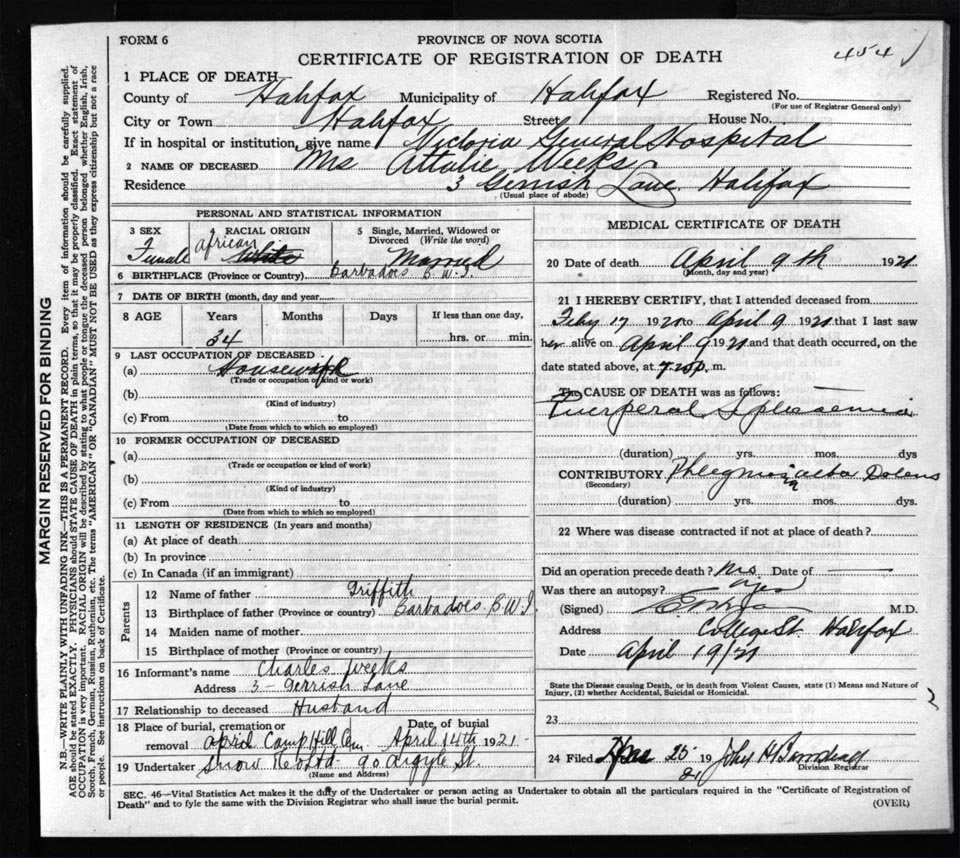 FORM 6
PROVINCE OF NOVA SCOTIA
CERTIFICATE OF REGISTRATION OF DEATH
454
1 PLACE OF DEATH
County of Halifax Municipality of Halifax Registered No.
(For use of Registrar General only)
City or Town Halifax Street House No.
If in hospital or institution, give name Victoria General Hospital
2 NAME OF DECEASED Mrs Attalie Weeks
Residence 3 Gerrish Lane. Halifax
(Usual place of abode)
PERSONAL AND STATISTICAL INFORMATION
3 SEX
Female
RACIAL ORIGIN
african White
5 Single, Married, Widowed or
Divorced (Write the word)
Married
6 BIRTHPLACE (Province or Country) Barbadoes B.W.I.
7 DATE OF BIRTH (month, day and year)
8 AGE Years Months Days If less than one day,
34 hrs. or min.
9 LAST OCCUPATION OF DECEASED
(a) Housewife
(Trade or occupation kind or work)
(b)
(Kind of industry)
(c) From to
(Date from which to which so employed)
10 FORMER OCCUPATION OF DECEASED
(a)
(Trade or occupation or kind of work)
(b)
(Kind of industry)
(c) From to
(Date from which to which so employed)
11 LENGTH OF RESIDENCE (In years and months)
(a) At place of death
(b) In province
(c) In Canada (if an immigrant)
Parents
12 Name of father Griffith
13 Birthplace of father (Province or country) Barbadoes B.W.I.
14 Maiden name of mother
15 Birthplace of mother (Province or country)
16 Informant's name Charles Weeks
Address 3 - Gerrish Lane
17 Relationship to deceased Husband
18 Place of burial, cremation or Date, of burial
removal april Camp Hill Cem. April 14th 1921
19 Undertaker Snow & Co Ltd 90 Argyle St.
(Name and Address)
MEDICAL CERTIFICATE OF DEATH
20 Date of death April 9th 1921
(Month, day and year)
21 I HEREBY CERTIFY, that I attended deceased from
Feby 17 1921 to April 9 1921 that I last saw
her alive on April 9 1921 and that death occurred, on the
date stated above, at 7.20 p. m.
The CAUSE OF DEATH was as follows:
Puerperal Septicaemia
(duration) yrs. mos. days
CONTRIBUTORY Phlegmasia alba Dolens
(Secondary)
(duration) yrs. mos. dys.
22 Where was disease contracted if not at place of death?
Did an operation precede death? No Date of
Was there an autopsy? yes
(Signed) M.D.
Address College St. Halifax
Date April 19/21
State the Disease causing Death, or in death from Violent Causes, state (1) Means and Nature of
Injury, (2) whether Accidental, Suicidal or Homicidal.
23
24 Filed 25 1921 John
Division Registrar
SEC. 46—Vital Statistics Act makes it the duty of the Undertaker or person acting as Undertaker to obtain all the particulars required in the "Certificate of Registration of
Death" and to fyle the same with the Division Registrar who shall issue the burial permit.
(OVER)
MARGIN RESERVED FOR BINDING
N.B.—WRITE PLAINLY WITH UNFADING INK—THIS IS A PERMANENT RECORD. Every item of information should be carefully supplied.
AGE should be stated EXACTLY. PHYSICIANS should STATE CAUSE OF DEATH in plain terms, so that it may be properly classified. Exact statement of
OCCUPATION is very important. RACIAL ORIGIN will be described by stating to what people or tongue the deceased person belonged whether English, Irish,
Scotch, French, German, Russian, Ruthenian, etc. The terms "AMERICAN" OR "CANADIAN" MUST NOT BE USED as they express citizenship but not a race
or people. See instructions on back of Certificate.